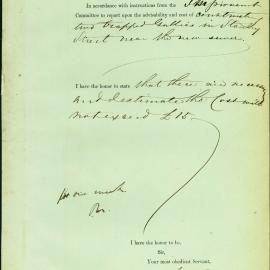 In accordance with instructions from the Improvement
Committee to report upon the advisability and cost of construct
two trapped Gullies in Stanley
Street near the new sewer.
I have the honor to state that these are necessary
and I estimate the Cost will
not exceed £15.
for one week
I have the honor to be,
Sir,
Your most obedient Servant,